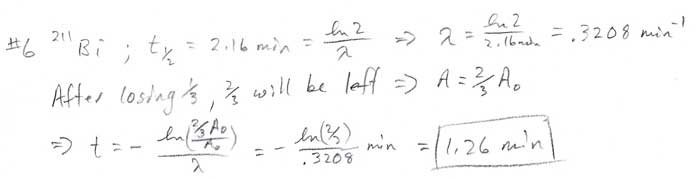 #6 ²¹¹Bi ; t½ = 2.16 min = ln 2/λ ⇒ λ = ln 2/2.16 min = .3208 min⁻¹
After losing ⅓, ⅔ will be left ⇒ A = ⅔ A₀
⇒ t = - ln(⅔A₀/A₀)/λ = - ln(⅔)/.3208 min = 1.26 min